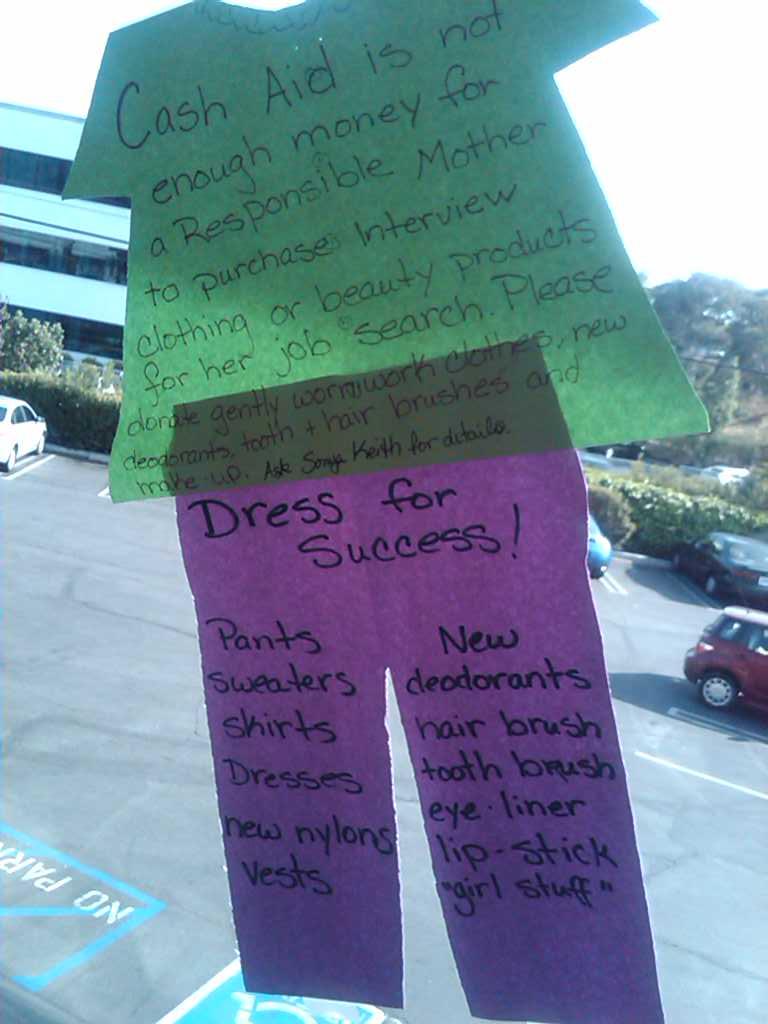 Cash Aid is not
enough money for
a Responsible Mother
to purchase Interview
clothing or beauty products
for her job search. Please
donate gently worn work clothes, new
deodorants, tooth + hair brushes and
make-up. Ask Sonja Keith for details.
Dress for
Success!
Pants
sweaters
skirts
Dresses
new nylons
vests
New
deodorants
hair brush
tooth brush
eye-liner
lip-stick
"girl stuff"
NO PARK